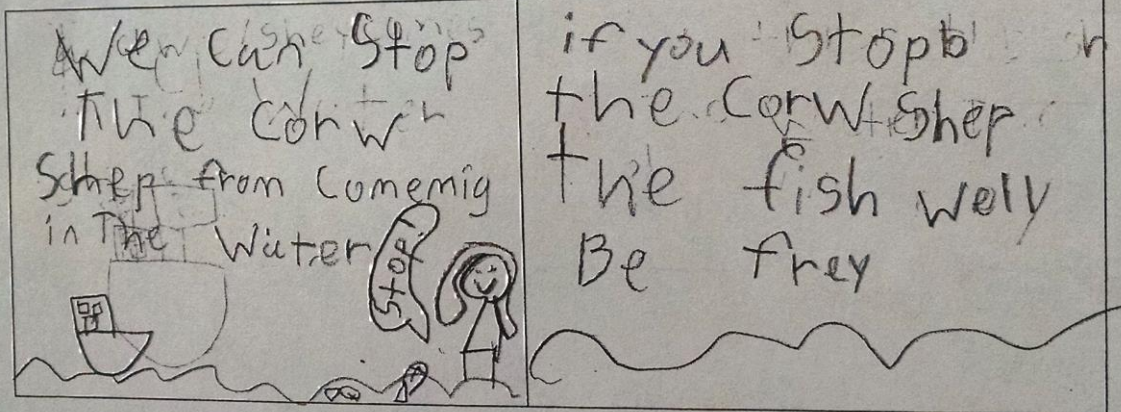 We can Stop
The corw
Schep from Comemig
in The Water
Stop!
if you Stop
the Corw Shep
the fish wely
Be frey